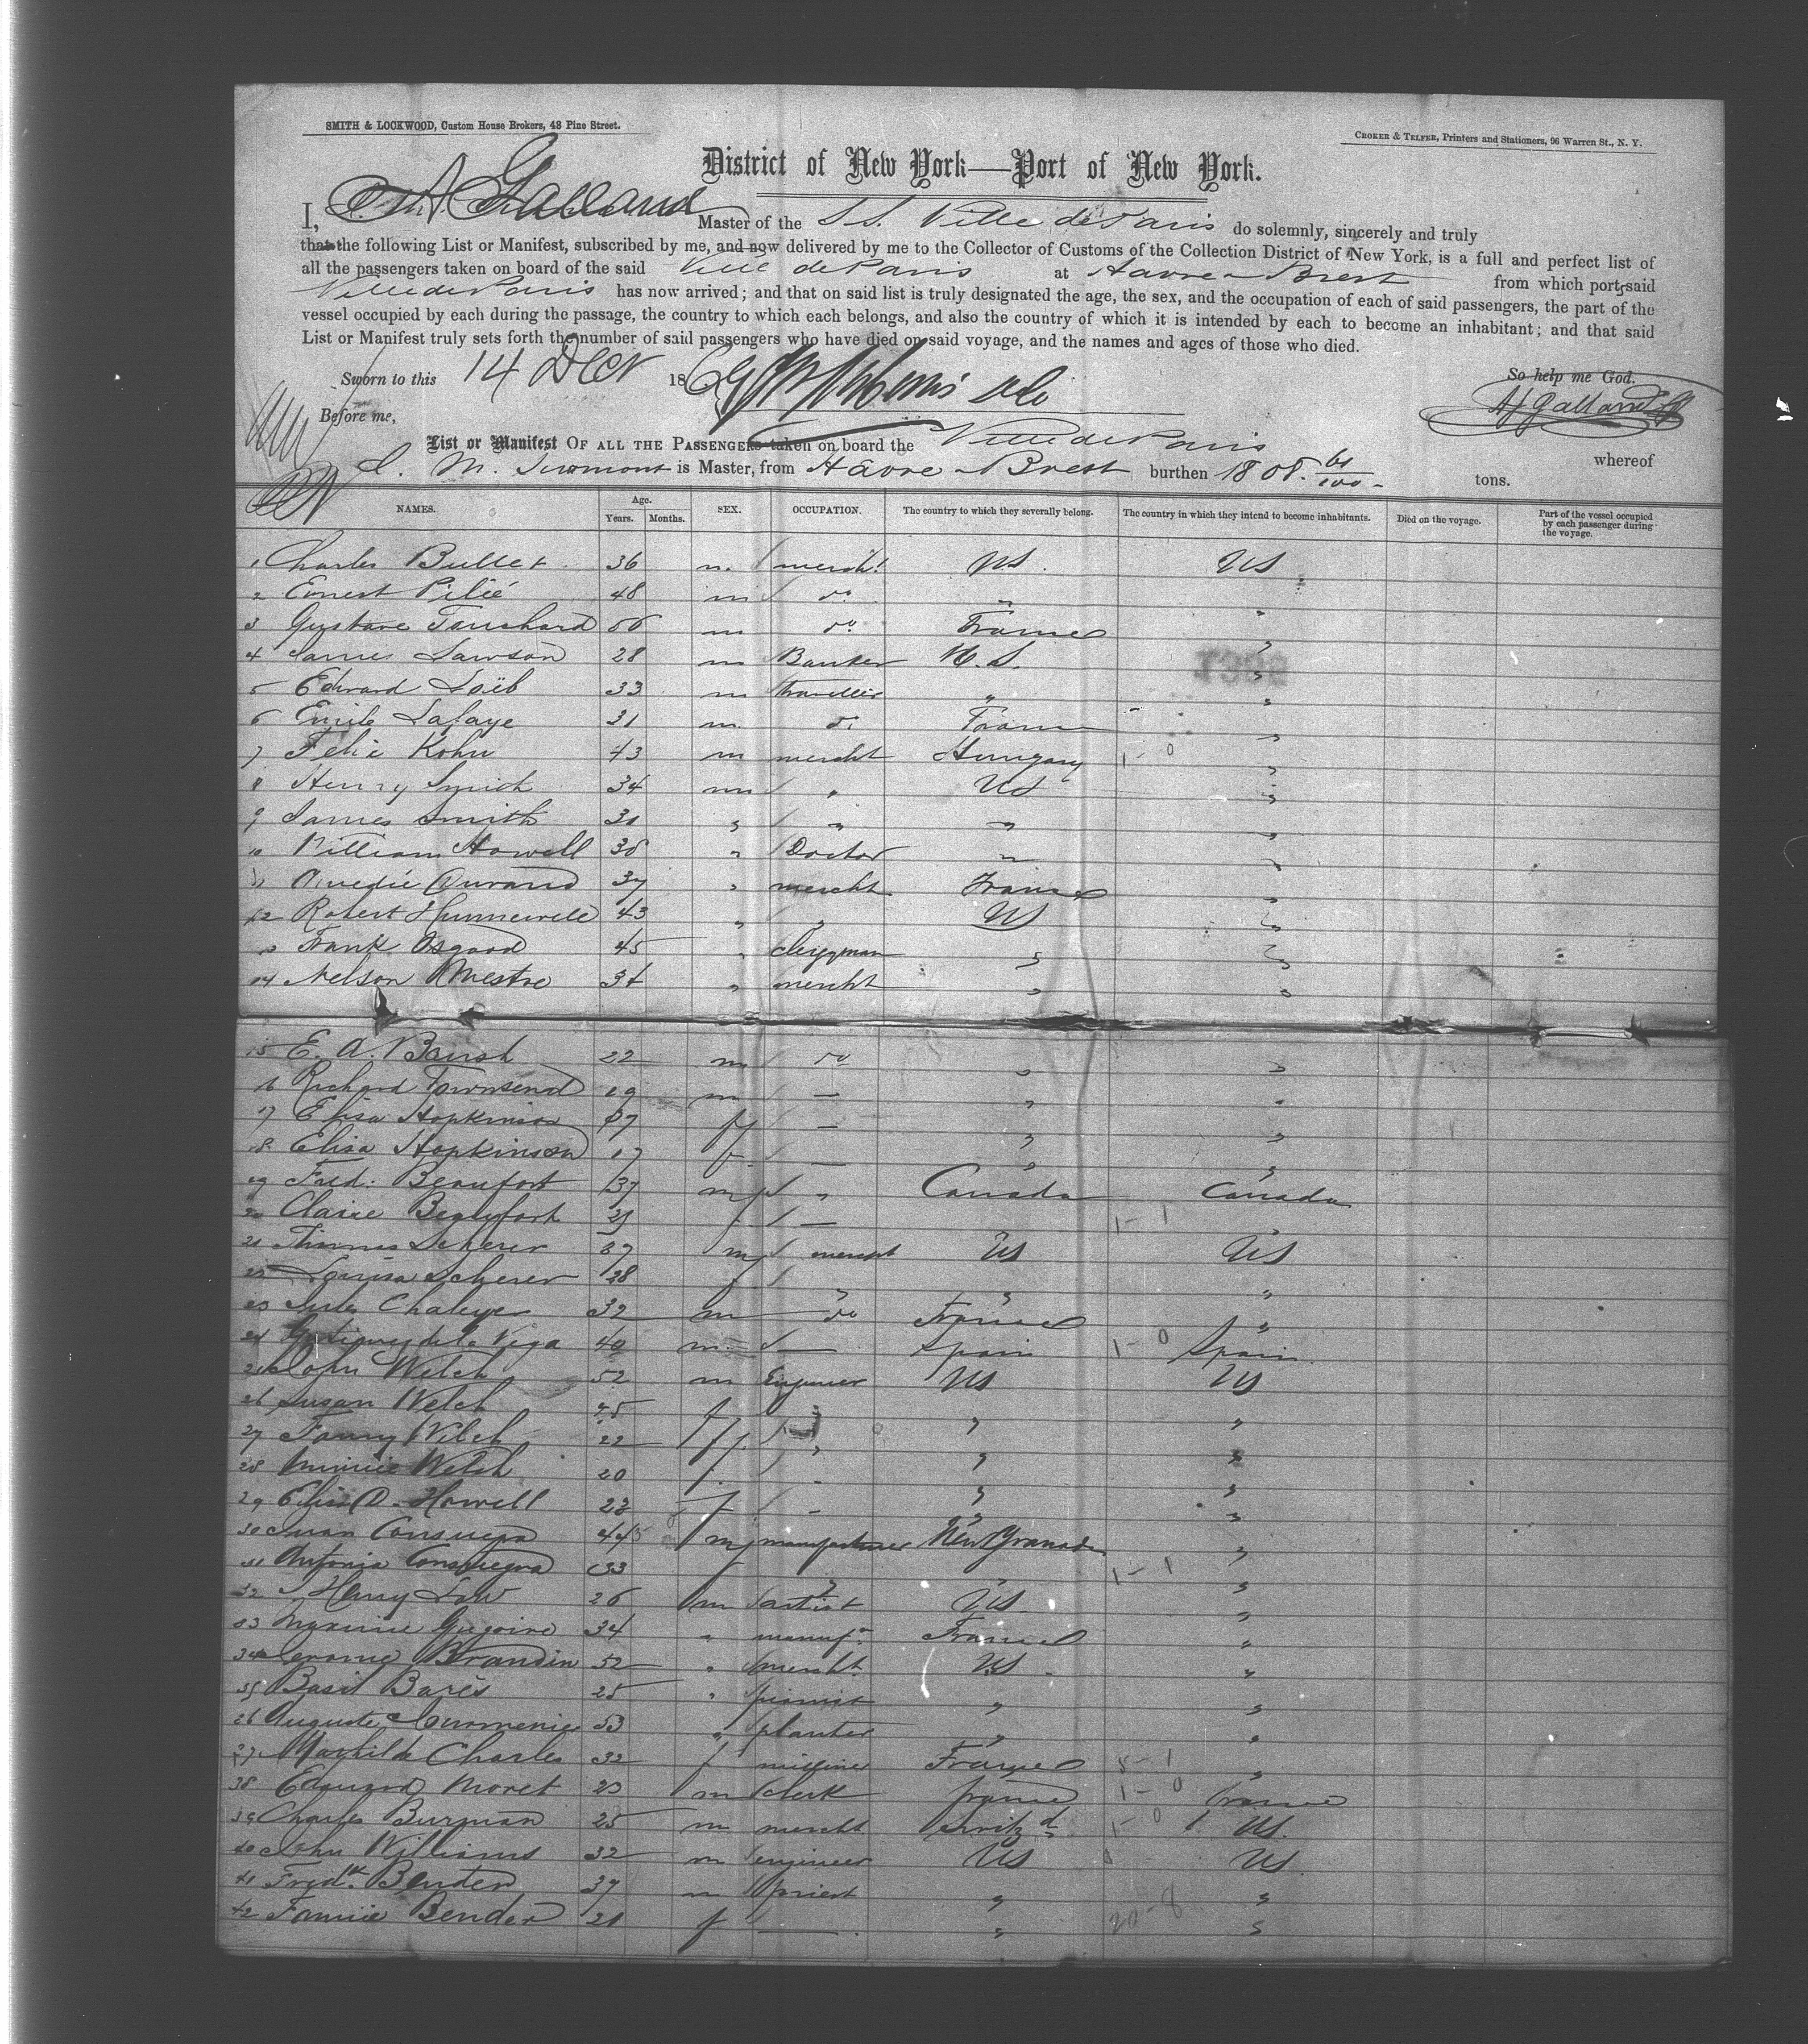 SMITH & LOCKWOOD, Custom House Brokers, 48 Pine Street.
CROKER & TELFER, Printers and Stationers, 96 Warren St., N. Y.
District of New York—Port of New York.
I, Galland Master of the S.S. Ville de Paris do solemnly, sincerely and truly
that the following List or Manifest, subscribed by me, and now delivered by me to the Collector of Customs of the Collection District of New York, is a full and perfect list of
all the passengers taken on board of the said Ville de Paris at Havre & Brest from which port said
Ville de Paris has now arrived; and that on said list is truly designated the age, the sex, and the occupation of each of said passengers, the part of the
vessel occupied by each during the passage, the country to which each belongs, and also the country of which it is intended by each to become an inhabitant; and that said
List or Manifest truly sets forth the number of said passengers who have died on said voyage, and the names and ages of those who died.
Sworn to this 14 Dec 1869
So help me God.
Before me,
AJ Galland
List or Manifest OF ALL THE PASSENGERS taken on board the Ville de Paris whereof
M. is Master, from Havre & Brest burthen 1808 tons.
NAMES. Age. Years. Months. SEX. OCCUPATION. The country to which they severally belong. The country in which they intend to become inhabitants. Died on the voyage. Part of the vessel occupied by each passenger during the voyage.
1 Charles Bullet 36 m mercht US US
2 Ernest Pilié 48 m do " "
3 Gustave Touchard 50 m do France "
4 James Lawson 28 m Banker U.S. "
5 Edward Loëb 33 m traveller " "
6 Emile Lafaye 31 m do France "
7 Felix Kohn 43 m mercht Hungary 1-0 "
8 Henry Smith 34 m " US "
9 James Smith 30 " " " "
10 William Howell 38 " Doctor " "
11 Amedée Durand 37 " mercht France "
12 Robert Hunnewell 43 " " US "
13 Frank Osgood 45 " clergyman " "
14 Nelson Mestre 34 " mercht " "
15 E. A. 22 m do " "
16 Richard Townsend 19 m — " "
17 Elisa Hopkinson f — " "
18 Elisa Hopkinson 17 f — " "
19 Fred. Beaufort 37 m " Canada Canada
20 Claire Beaufort 21 f — 1-1
21 Thomas Scherer 37 m mercht US US
22 Louisa Scherer 28 f " " "
23 Jules 32 m do France "
24 de la Vega 40 m — Spain 1-0 Spain
25 John Welch 52 m Engineer US US
26 Susan Welch f " " "
27 Fanny Welch 22 f " " "
28 Minnie Welch 20 f - " "
29 Elisa D. Howell 22 f - " "
30 Juan Consuegra m manufacturer New Granada "
31 Antonia Consuegra 33 f " " 1-1 "
32 Henry Law 26 m artist US "
33 Maxime Gregoire 34 " manufr France "
34 Jerome Brandin 52 " mercht US "
35 Basil Barès 25 " pianist " "
36 Auguste 53 " planter " "
37 Mathilde Charles 32 f milliner France "
38 Edouard Moret 23 m clerk france 1-0 france
39 Charles Burman 25 m mercht Switzd 1-0 US.
40 John Williams 32 m engineer US US
41 Fredk. Bender 37 m priest " "
42 Fannie Bender 21 f — " 20-8 "